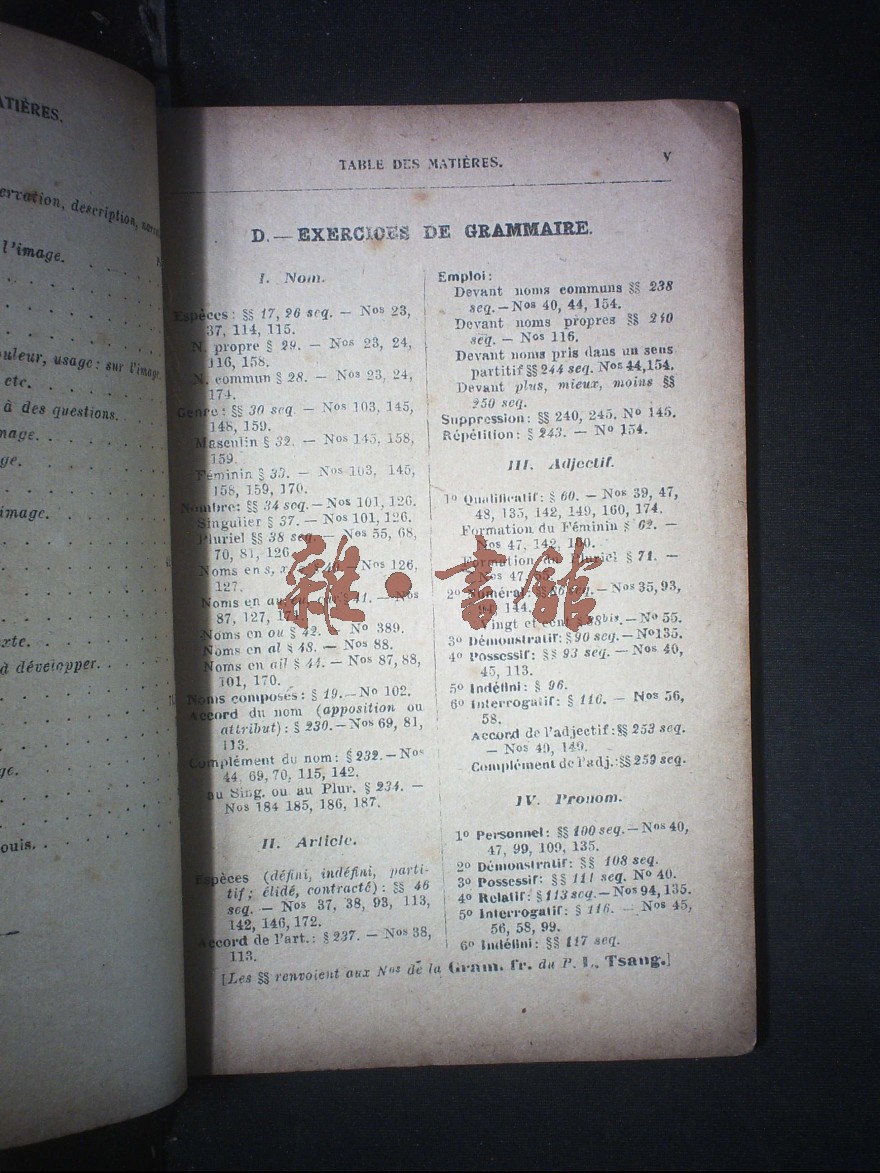 ATIÈRES.
ervation, description, narra
l'image.
ouleur, usage: sur l'image.
etc.
à des questions.
nage.
ge.
image.
xte.
à développer.
ge.
ouis.
TABLE DES MATIÈRES. V
D. — EXERCICES DE GRAMMAIRE.
I. Nom.
Espèces : §§ 17, 26 seq. — Nos 23,
37, 114, 115.
N. propre § 29. — Nos 23, 24,
116, 158.
N. commun § 28. — Nos 23, 24,
174.
Genre : §§ 30 seq. — Nos 103, 145,
148, 159.
Masculin § 32. — Nos 145, 158,
159.
Féminin § 33. — Nos 103, 145,
158, 159, 170.
Nombre: §§ 34 seq. — Nos 101, 126.
Singulier § 37. — Nos 101, 126.
Pluriel §§ 38 seq. — Nos 55, 68,
70, 81, 126.
Noms en s, — Nos 126,
127.
Noms en au, eu, § 41. — Nos
87, 127, 174.
Noms en ou § 42. — No 389.
Noms en al § 43. — Nos 88.
Noms en ail § 44. — Nos 87, 88,
101, 170.
Noms composés : § 19. — No 102.
Accord du nom (apposition ou
attribut) : § 230. — Nos 69, 81,
113.
Complément du nom : § 232. — Nos
44, 69, 70, 115, 142.
au Sing. ou au Plur. § 234. —
Nos 184 185, 186, 187.
II. Article.
Espèces (défini, indéfini, parti-
tif ; élidé, contracté) : §§ 46
seq. — Nos 37, 38, 93, 113,
142, 146, 172.
Accord de l'art. : § 237. — Nos 38,
113.
Emploi :
Devant noms communs §§ 238
seq. — Nos 40, 44, 154.
Devant noms propres §§ 240
seq. — Nos 116.
Devant noms pris dans un sens
partitif §§ 244 seq. Nos 44, 154.
Devant plus, mieux, moins §§
250 seq.
Suppression : §§ 240, 245. No 145.
Répétition : § 243. — No 154.
III. Adjectif.
1o Qualificatif : § 60. — Nos 39, 47,
48, 135, 142, 149, 160, 174.
Formation du Féminin § 62. —
Nos 47, 142, 160.
Formation du Pluriel § 71. —
Nos 47,
2o Numéral : seq. — Nos 35, 93,
94, 144.
Vingt et cent § 88bis. — No 55.
3o Démonstratif : § 90 seq. — No 135.
4o Possessif : §§ 93 seq. — Nos 40,
45, 113.
5o Indéfini : § 96.
6o Interrogatif : § 116. — Nos 56,
58.
Accord de l'adjectif : §§ 253 seq.
— Nos 49, 149.
Complément de l'adj. : §§ 259 seq.
IV. Pronom.
1o Personnel : §§ 100 seq. — Nos 40,
47, 99, 109, 135.
2o Démonstratif : §§ 108 seq.
3o Possessif : §§ 111 seq. No 40.
4o Relatif : § 113 seq. — Nos 94, 135.
5o Interrogatif : § 116. — Nos 45,
56, 58, 99.
6o Indéfini : §§ 117 seq.
[Les §§ renvoient aux Nos de la Gram. fr. du P. L. Tsang.]
雜·書館